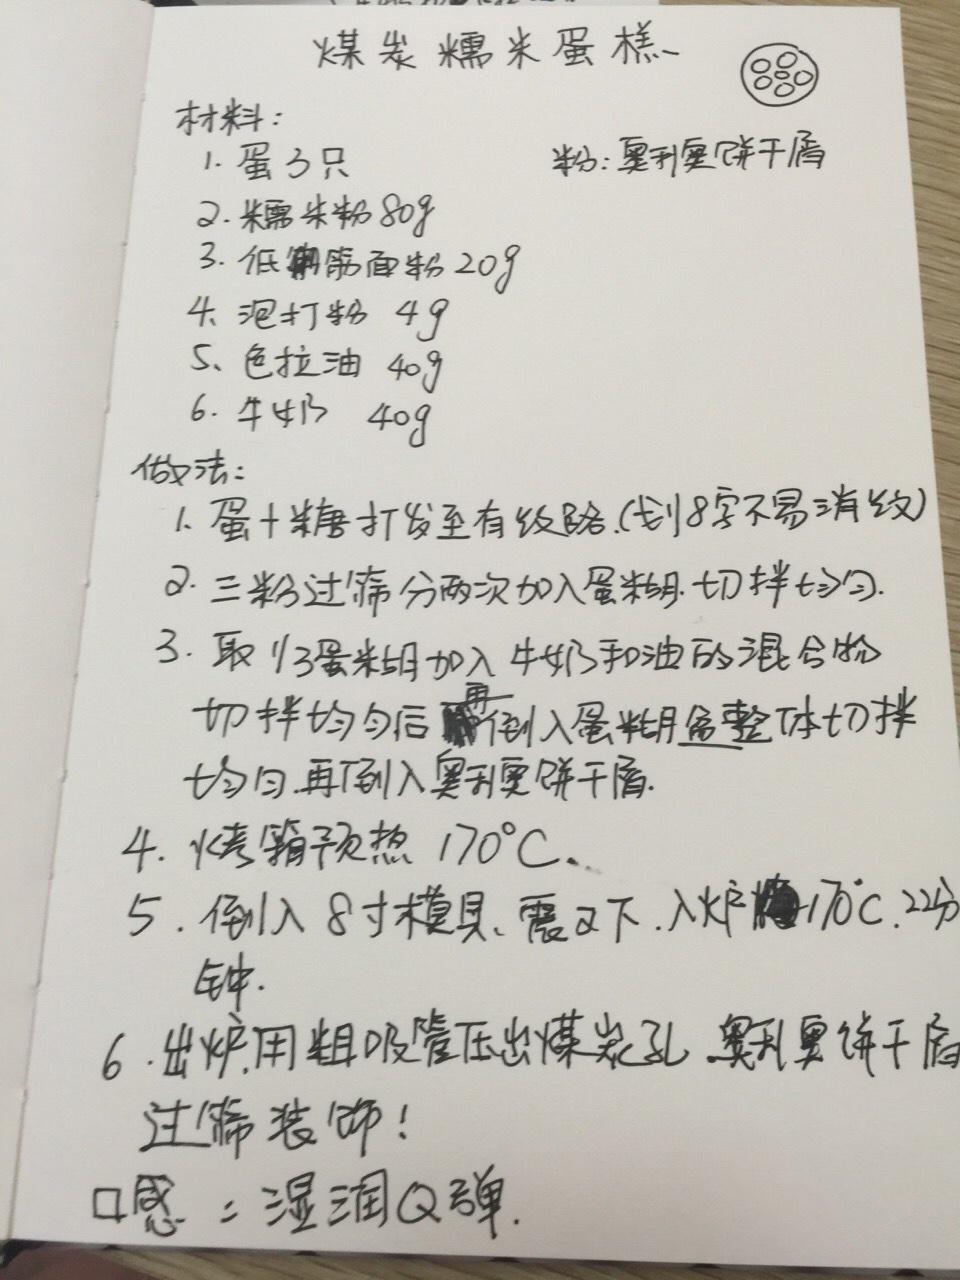 煤炭糯米蛋糕
材料:
1. 蛋3只
粉: 奥利奥饼干屑
2. 糯米粉80g
3. 低筋面粉20g
4. 泡打粉 4g
5、色拉油 40g
6. 牛奶 40g
做法:
1. 蛋+糖打发至有纹路.(划8字不易消纹)
2. 三粉过筛分两次加入蛋糊.切拌均匀.
3. 取1/3蛋糊加入牛奶和油的混合物
切拌均匀后再倒入蛋糊整体切拌
均匀.再倒入奥利奥饼干屑.
4. 烤箱预热 170°C.
5. 倒入8寸模具、震2下.入炉170°C.22分
钟.
6. 出炉.用粗吸管压出煤炭孔 奥利奥饼干屑
过筛装饰!
口感:湿润Q弹.